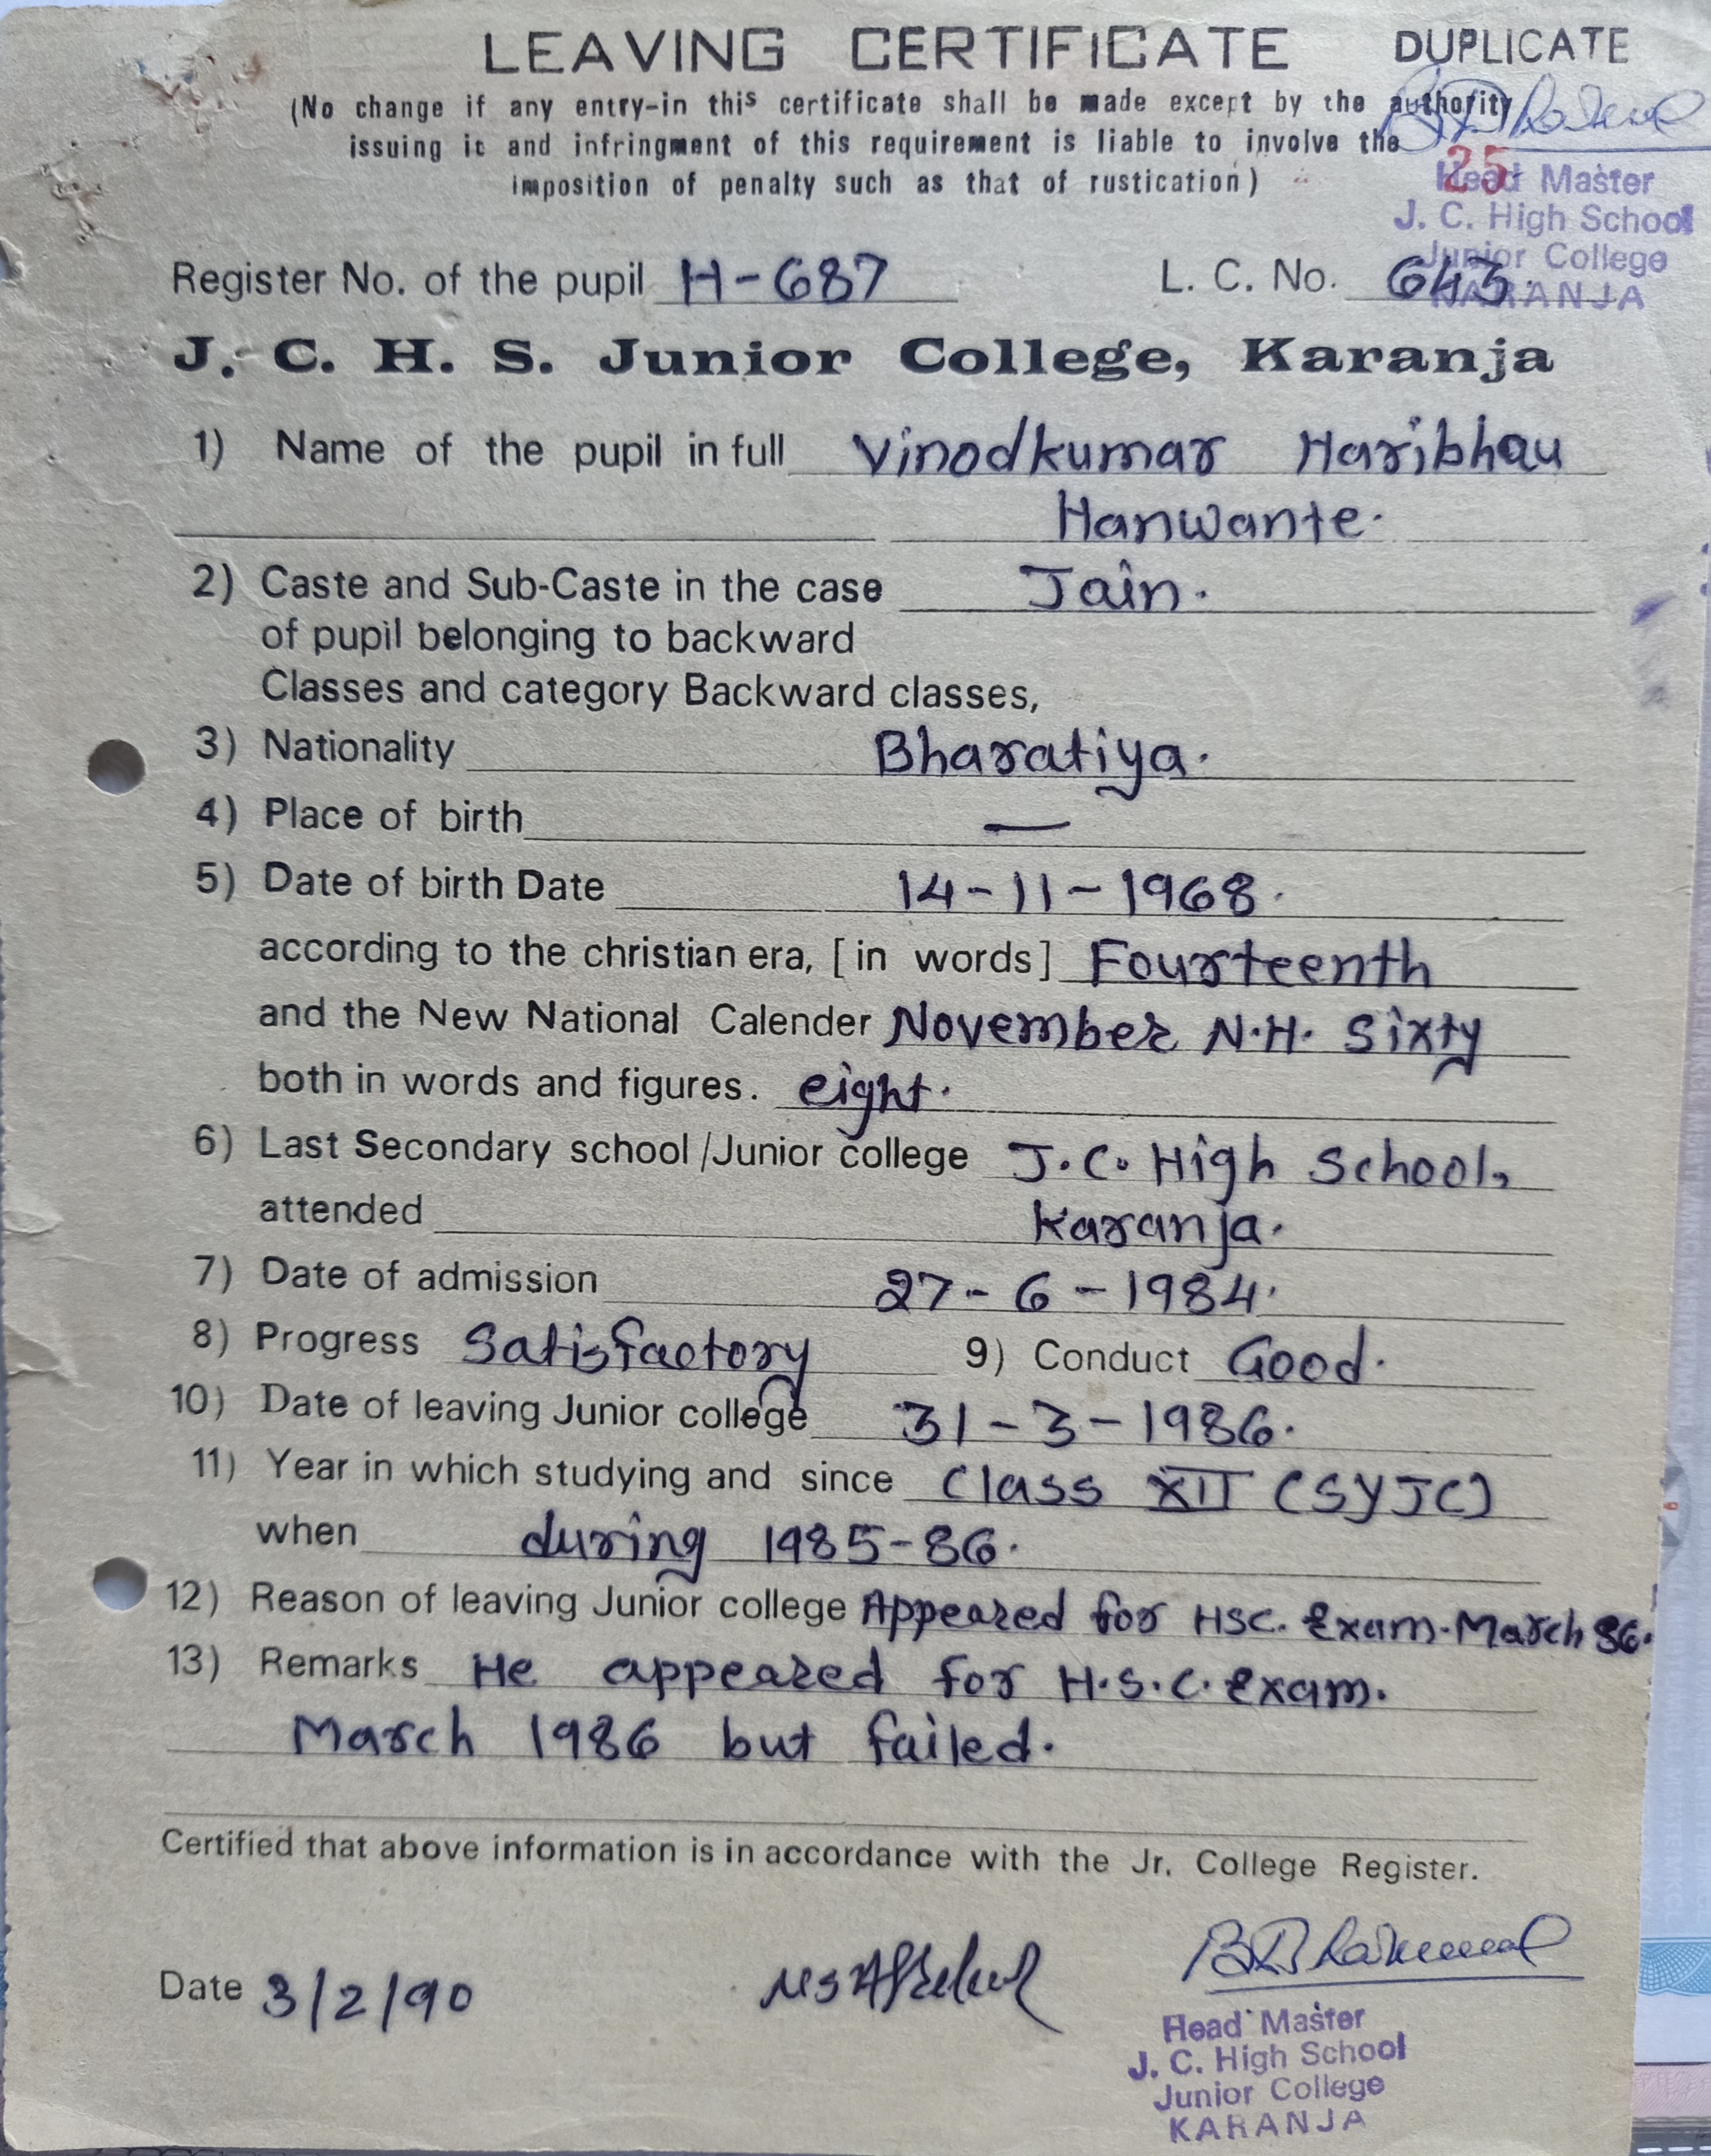 LEAVING CERTIFICATE DUPLICATE
(No change if any entry-in this certificate shall be made except by the authority
issuing it and infringment of this requirement is liable to involve the
imposition of penalty such as that of rustication)
25
Head Master
J. C. High School
Junior College
KARANJA
Register No. of the pupil H-687 L. C. No. 643.
J. C. H. S. Junior College, Karanja
1) Name of the pupil in full Vinodkumar Haribhau
Hanwante.
2) Caste and Sub-Caste in the case Jain.
of pupil belonging to backward
Classes and category Backward classes,
3) Nationality Bharatiya.
4) Place of birth —
5) Date of birth Date 14-11-1968.
according to the christian era, [in words] Fourteenth
and the New National Calender November N.H. Sixty
both in words and figures. eight.
6) Last Secondary school/Junior college J.C. High School,
attended Karanja.
7) Date of admission 27-6-1984.
8) Progress Satisfactory 9) Conduct Good.
10) Date of leaving Junior college 31-3-1986.
11) Year in which studying and since Class XII (SYJC)
when during 1985-86.
12) Reason of leaving Junior college Appeared for HSC. Exam. March 86.
13) Remarks He appeared for H.S.C. Exam.
March 1986 but failed.
Certified that above information is in accordance with the Jr. College Register.
Date 3/2/90
Head Master
J. C. High School
Junior College
KARANJA